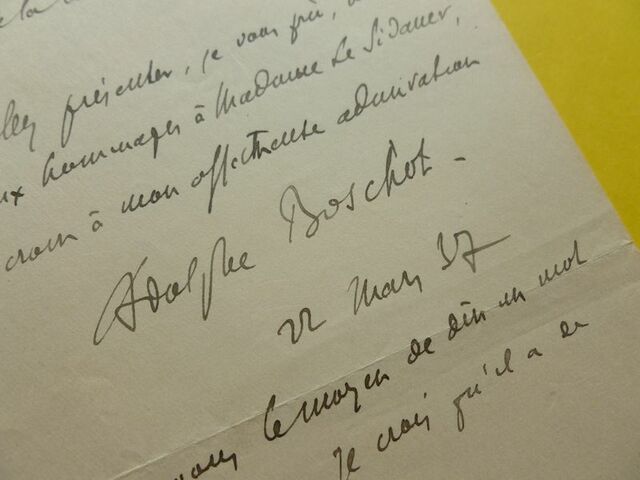 la
présenter, je vous prie,
hommages à Madame Le Sidaner,
croire à mon affectueuse admiration
Adolphe Boschot -
22 Mars 37
le moyen de dire un mot
Je crois qu'il a